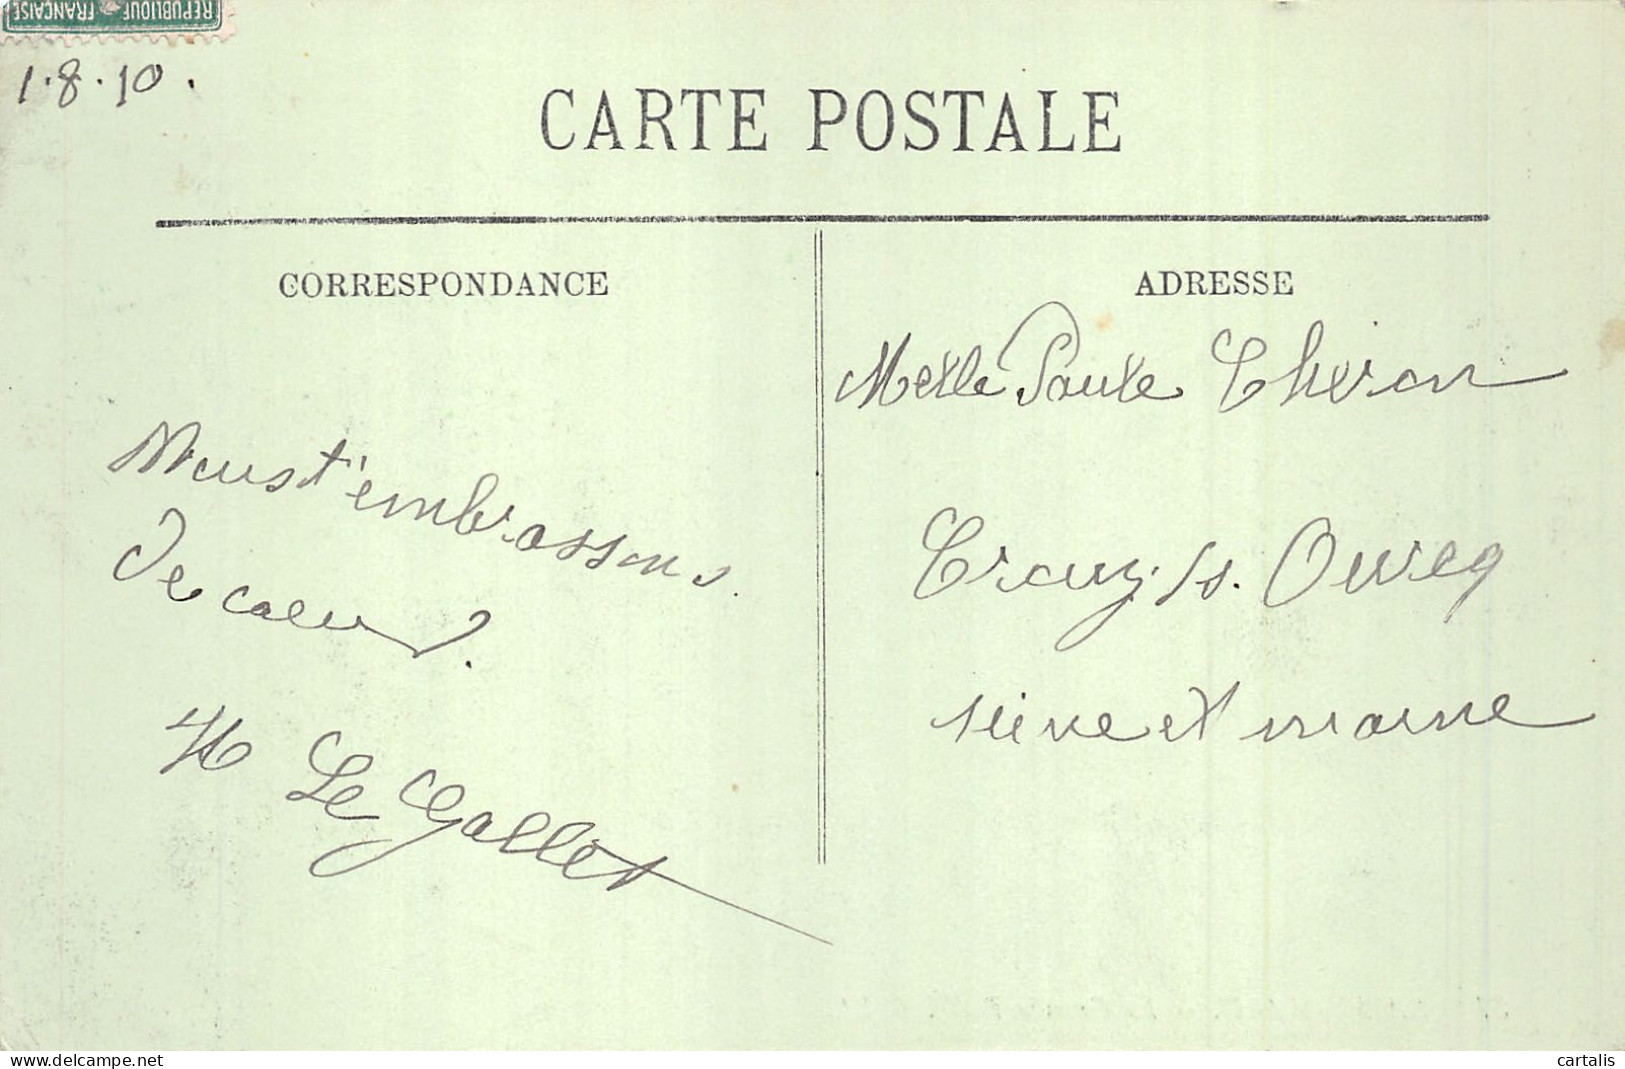 REPUBLIQUE FRANÇAISE
1.8.10.
CARTE POSTALE
CORRESPONDANCE
ADRESSE
Melle Paule Chéron
Nous t'embrassons
De coeur.
Crouy. s. Ourcq
seine et marne
H Le Gallet
cartalis